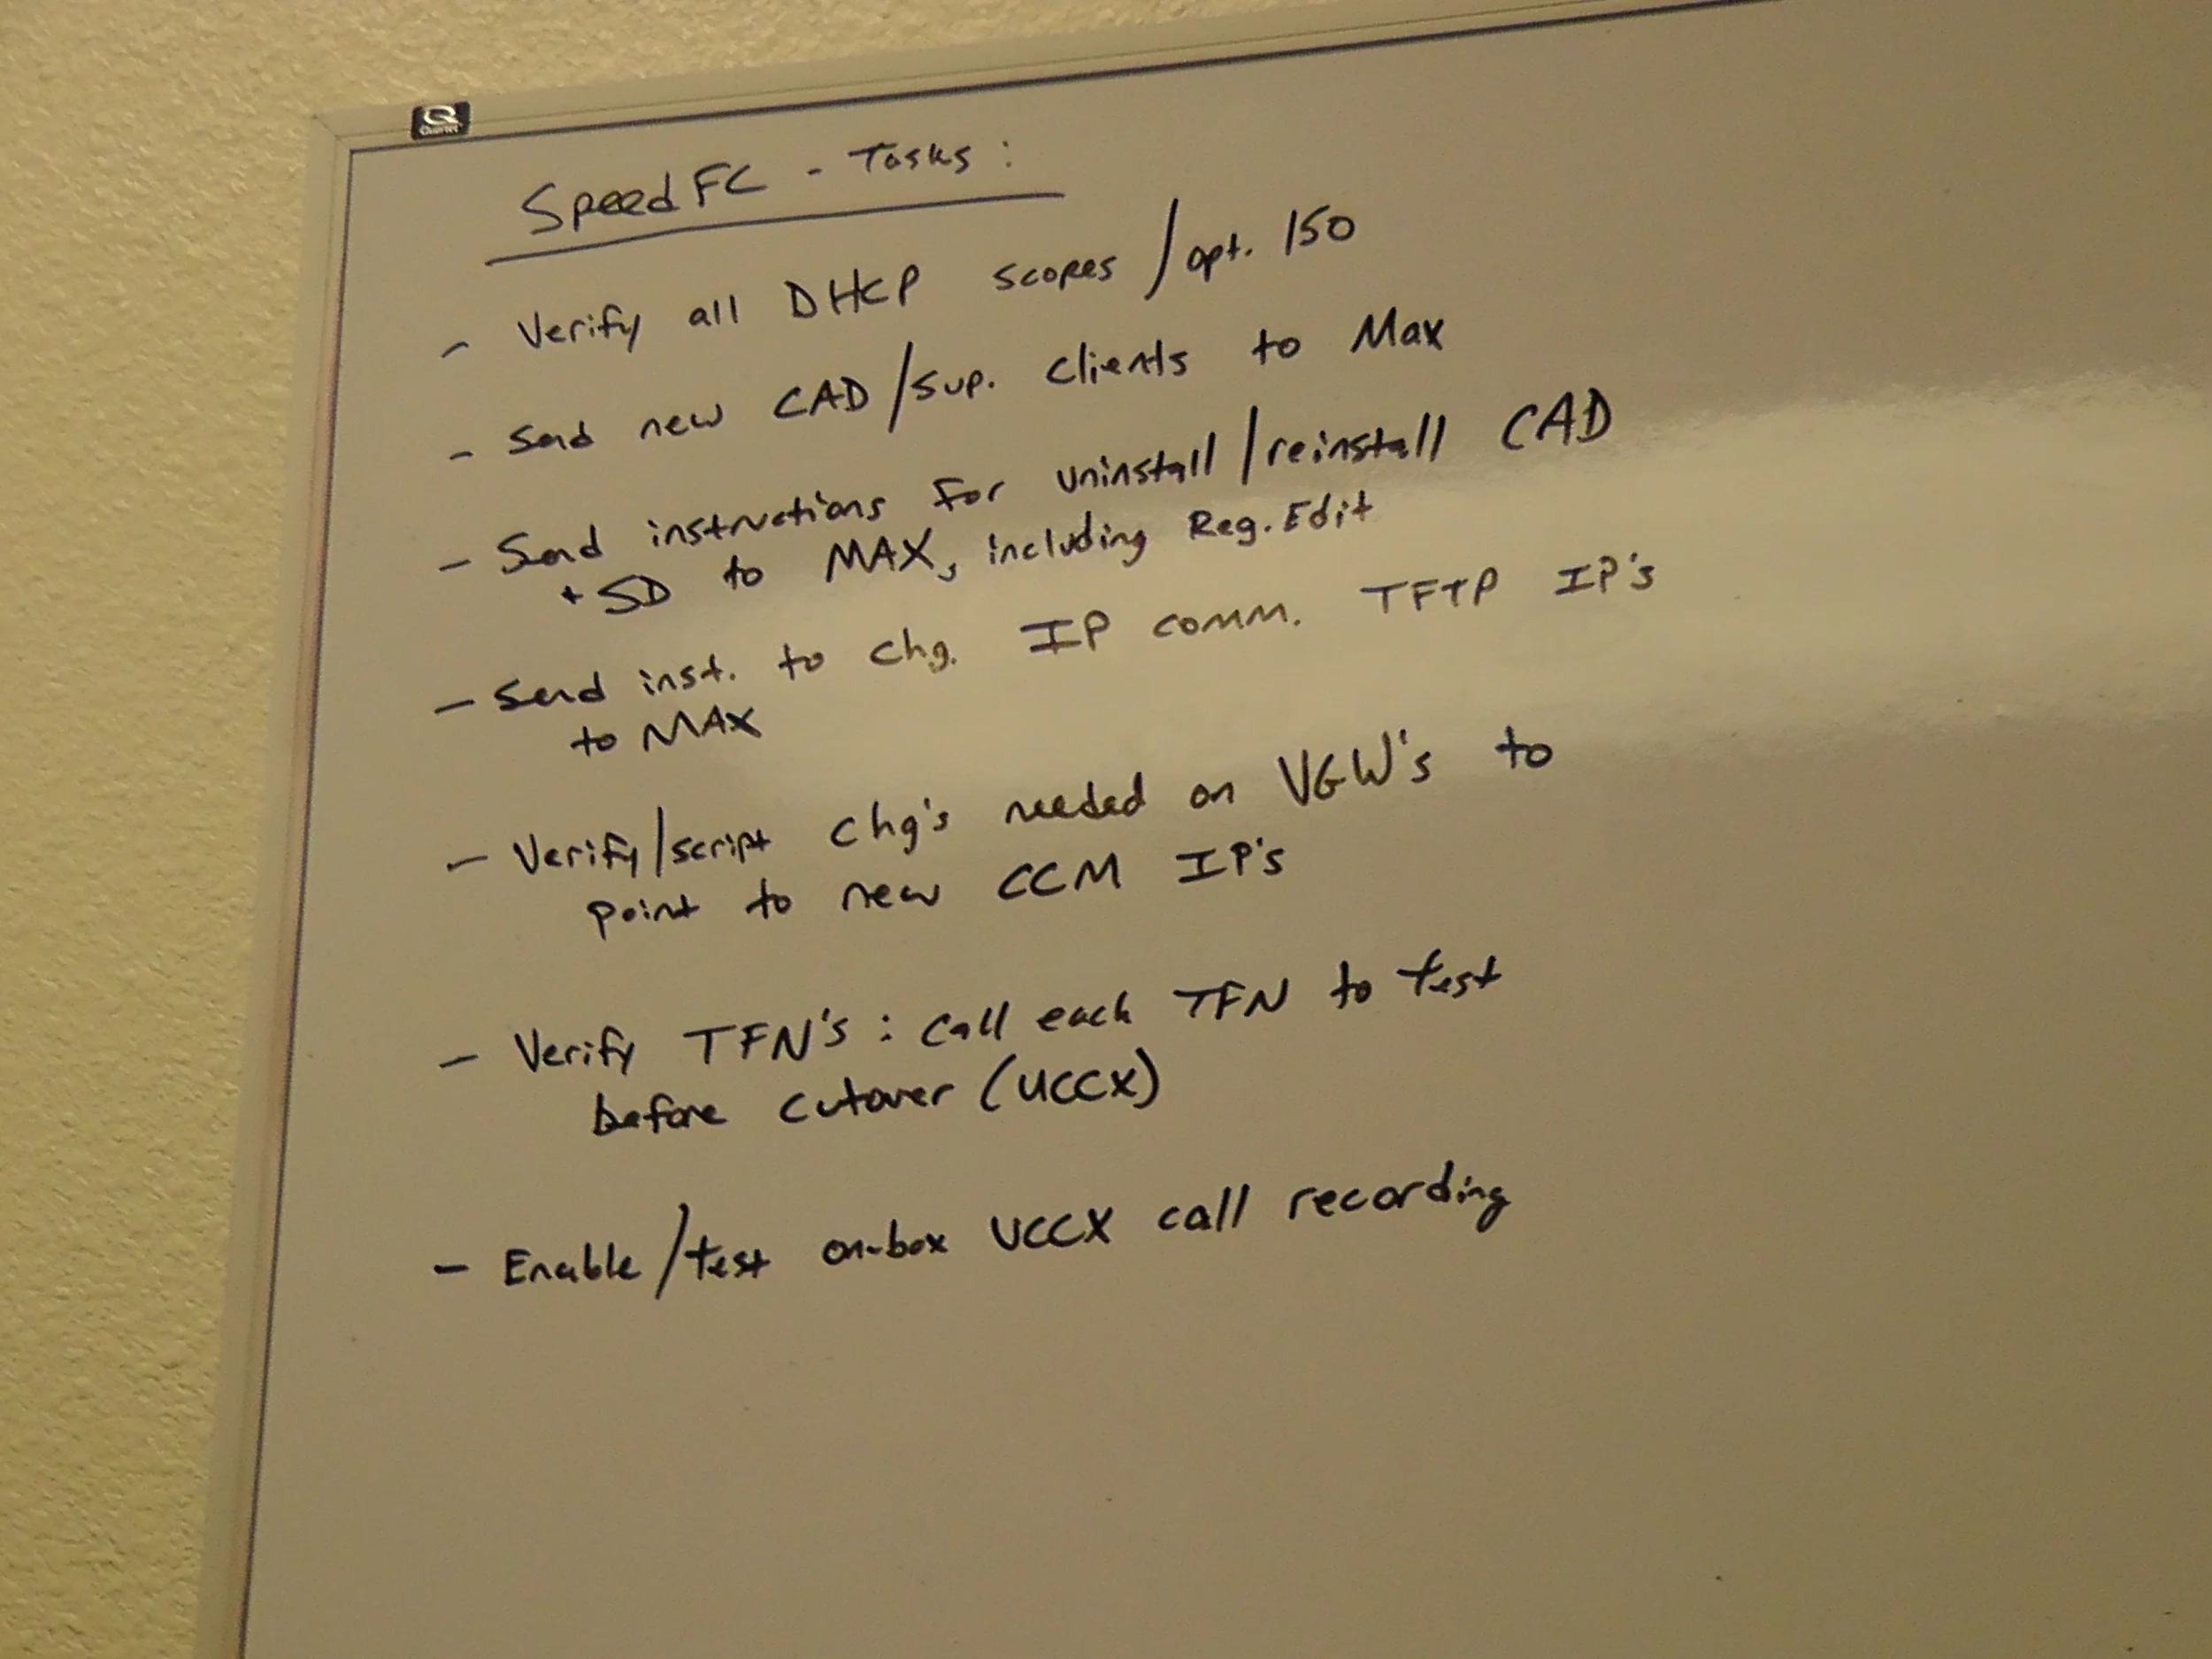 Quartet
SpeedFC - Tasks:
- Verify all DHCP scopes / opt. 150
- Send new CAD/sup. clients to Max
- Send instructions for uninstall/reinstall CAD
+ SD to MAX, including Reg. Edit
- Send inst. to chg. IP comm. TFTP IP's
to MAX
- Verify/script chg's needed on VGW's to
point to new CCM IP's
- Verify TFN's: call each TFN to test
before cutover (UCCX)
- Enable/test on-box UCCX call recording